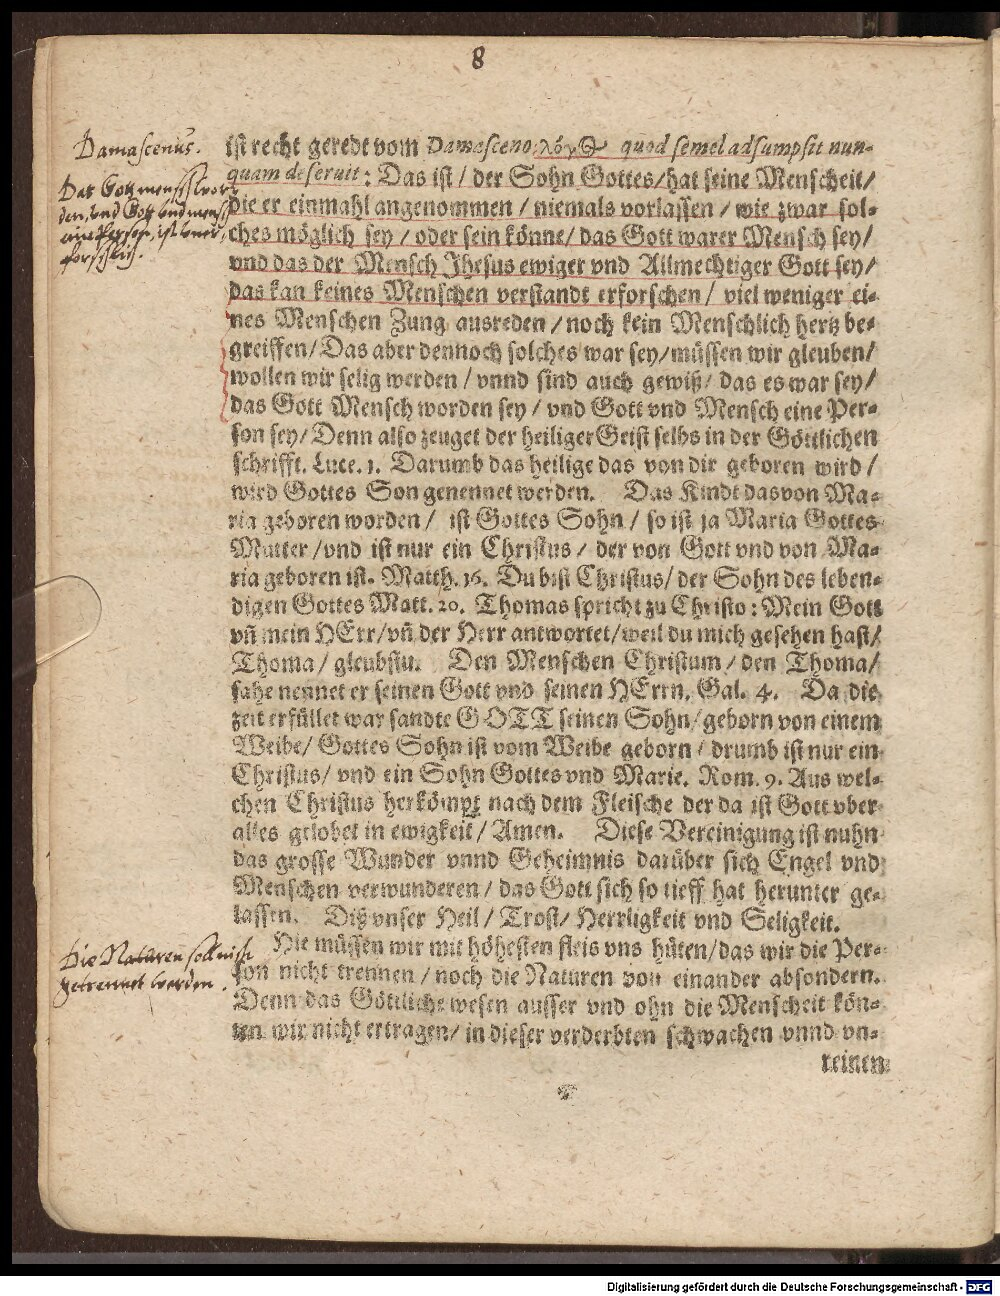 8
Damascenus.
Das Gott mensch wor-
den, vnd Gott vnd mensch
eine Person, ist vner-
forschlich.
ist recht geredt vom Damasceno, λόγ quod semel adsumpsit nun-
quam deseruit: Das ist / der Sohn Gottes/hat seine Menscheit/
die er einmahl angenommen / niemals vorlassen / wie zwar sol-
ches möglich sey / oder sein könne/ das Gott warer Mensch sey/
vnd das der Mensch Jhesus ewiger vnd Allmechtiger Gott sey/
das kan keines Menschen verstandt erforschen/ viel weniger ei-
nes Menschen Zung ausreden / noch kein Menschlich hertz be-
greiffen/ Das aber dennoch solches war sey/müssen wir gleuben/
wollen wir selig werden / vnnd sind auch gewiß/ das es war sey/
das Gott Mensch worden sey / vnd Gott vnd Mensch eine Per-
son sey/ Denn also zeuget der heiliger Geist selbs in der Göttlichen
schrifft. Luce. 1. Darumb das heilige das von dir geboren wird /
wird Gottes Son genennet werden. Das Kindt das von Ma-
ria geboren worden / ist Gottes Sohn / so ist ja Maria Gottes
Mutter /vnd ist nur ein Christus / der von Gott vnd von Ma-
ria geboren ist. Matth. 16. Du bist Christus/ der Sohn des leben-
digen Gottes Matt. 20. Thomas spricht zu Christo: Mein Gott
vñ mein HErr/vñ der Herr antwortet/weil du mich gesehen hast/
Thoma / gleubstu. Den Menschen Christum / den Thoma/
sahe nennet er seinen Gott vnd seinen HErrn, Gal. 4. Da die
zeit erfüllet war sandte GOTT seinen Sohn/geborn von einem
Weibe/ Gottes Sohn ist vom Weibe geborn / drumb ist nur ein
Christus/ vnd ein Sohn Gottes vnd Marie. Rom. 9. Aus wel-
chen Christus herkömpt nach dem Fleische der da ist Gott vber
alles gelobet in ewigkeit/ Amen. Diese Vereinigung ist nuhn
das grosse Wunder vnnd Geheimnis darüber sich Engel vnd
Menschen verwunderen / das Gott sich so tieff hat herunter ge-
lassen. Diß vnser Heil / Trost/ Herrligkeit vnd Seligkeit.
Die Naturen soll nicht
getrennet werden.
Hie müssen wir mit höhesten fleis vns hüten/das wir die Per-
son nicht trennen / noch die Naturen von einander absondern.
Denn das Göttliche wesen ausser vnd ohn die Menscheit kön-
ten wir nicht ertragen/ in dieser verderbten schwachen vnnd vn-
reinen
Digitalisierung gefördert durch die Deutsche Forschungsgemeinschaft - DFG